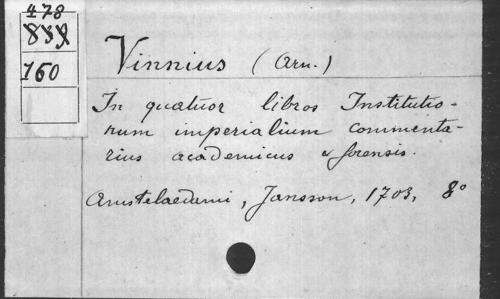 478
839
160
Vinnius (Arn.)
In quatuor libros Institutio-
num imperialium commenta-
rius academicus & forensis.
Amstelaedami, Jansson, 1703, 8°